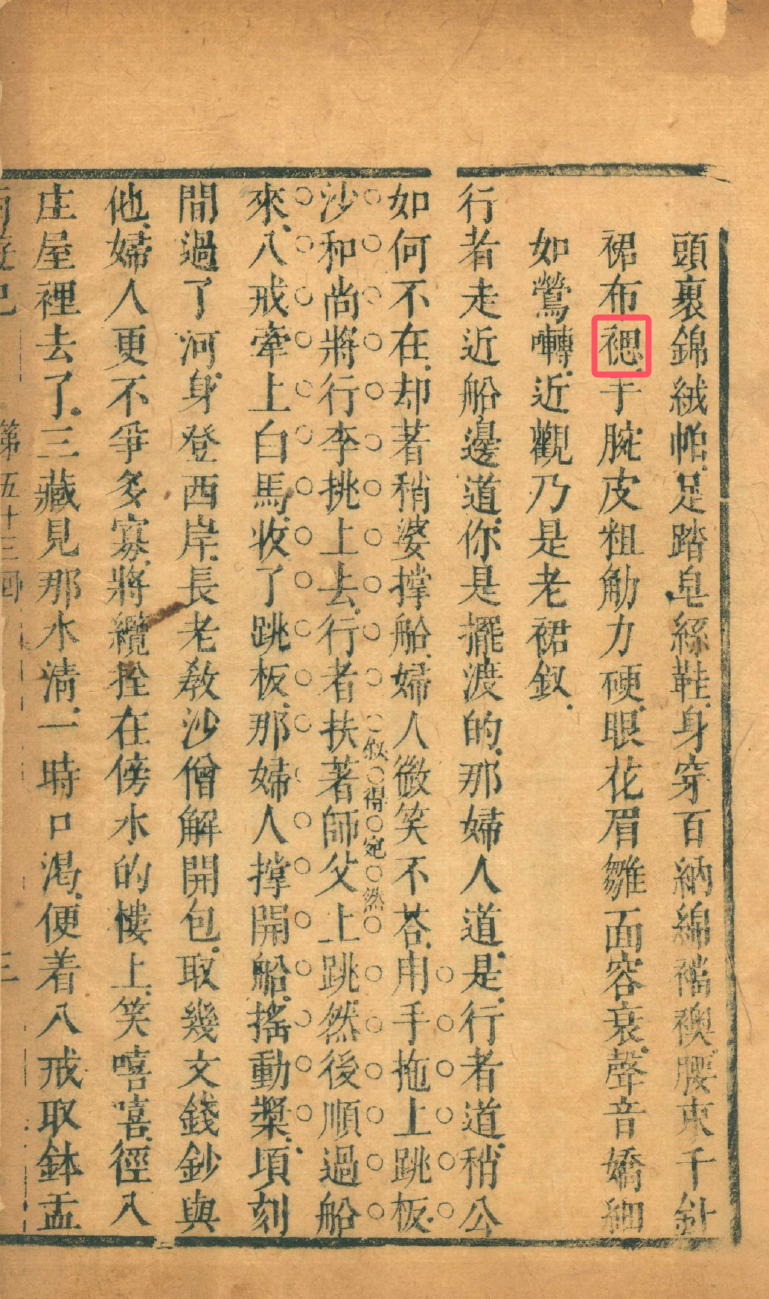 頭裹錦絨帕、足踏皂絲鞋、身穿百納綿襠襖、腰束千針
裙布禗、手腕皮粗觔力硬、眼花眉雛面容衰、聲音嬌細
如鶯囀、近觀乃是老裙釵、
行者走近船邊道、你是擺渡的、那婦人道、是、行者道、稍公
如何不在、却著稍婆撑船、婦人微笑不荅、用手拖上跳板、
叙得宛然
沙和尚將行李挑上去、行者扶著師父上跳、然後順過船
來、八戒牽上白馬、收了跳板、那婦人撑開船、搖動槳、頃刻
間過了河、身登西岸、長老教沙僧解開包、取幾文錢鈔與
他、婦人更不爭多寡、將纜拴在傍水的樓上、笑嘻嘻、徑入
庄屋裡去了、三藏見那水清、一時口渴、便着八戒取鉢盂
西遊記 第五十三回 三